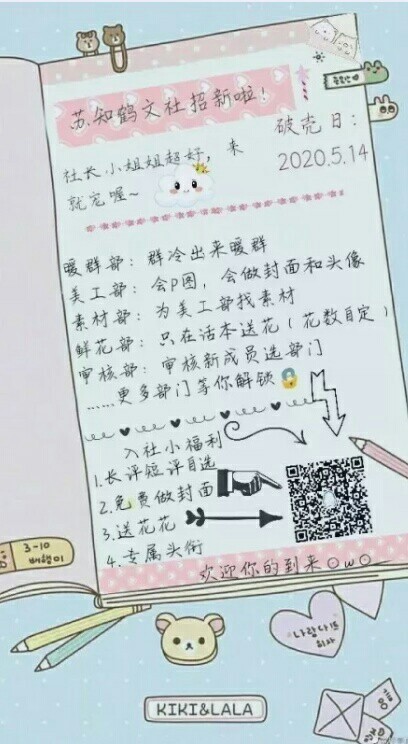 苏知鹤文社招新啦！
破壳日：
2020.5.14
社长小姐姐超好，来
就宠喔~
暖群部：群冷出来暖群
美工部：会P图，会做封面和头像
素材部：为美工部找素材
鲜花部：只在话本送花（花数自定）
审核部：审核新成员选部门
......更多部门等你解锁
入社小福利
1.长评短评自选
2.免费做封面
3.送花花
4.专属头衔
欢迎你的到来 ○w○
3-10
KIKI&LALA